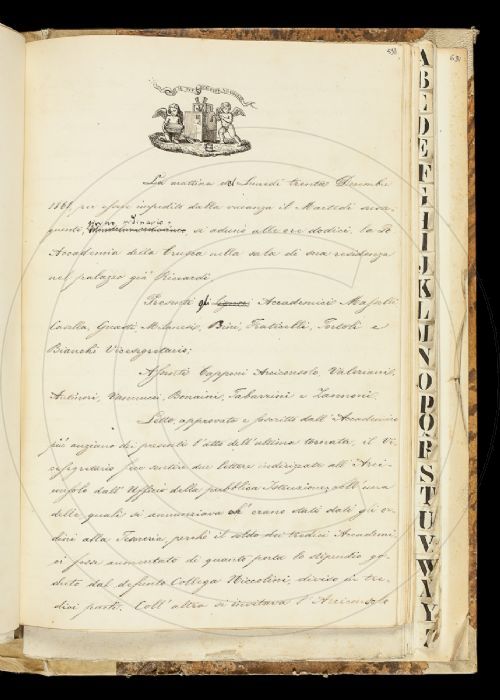 531
631
La mattina del Lunedì trenta Decembre
1861 per esser impedito dalla vacanza il Martedì susse-
guente, giorno ordinario, si adunò alle ore dodici la R.
Accademia della Crusca nella sala di sua residenza
nel palazzo già Riccardi.
Presenti gli Accademici Massolti
Casella, Guasti, Milanesi, Bini, Fraticelli, Tortoli e
Bianchi Vicesegretario;
Assenti Capponi Arciconsolo, Valeriani,
Antinori, Vannucci, Bonaini, Tabarrini e Zannoni.
Letto, approvato e soscritto dall'Accademico
più anziano dei presenti l'atto dell'ultima tornata, il Vi-
cesegretario fece sentire due lettere indirizzate all'Arci-
consolo dall'Uffizio della pubblica Istruzione; coll'una
delle quali si annunziava ch'erano stati dati gli or-
dini alla Tesoreria perchè il soldo dei tredici Accademi-
ci fosse aumentato di quanto porta lo stipendio go-
duto dal defunto Collega Niccolini, diviso in tre-
dici parti. Coll'altra si invitava l'Arciconsolo
A
B
C
D
E
F
G
H
I
J
K
L
M
N
O
P
Q
R
S
T
U
V
W
X
Y
Z